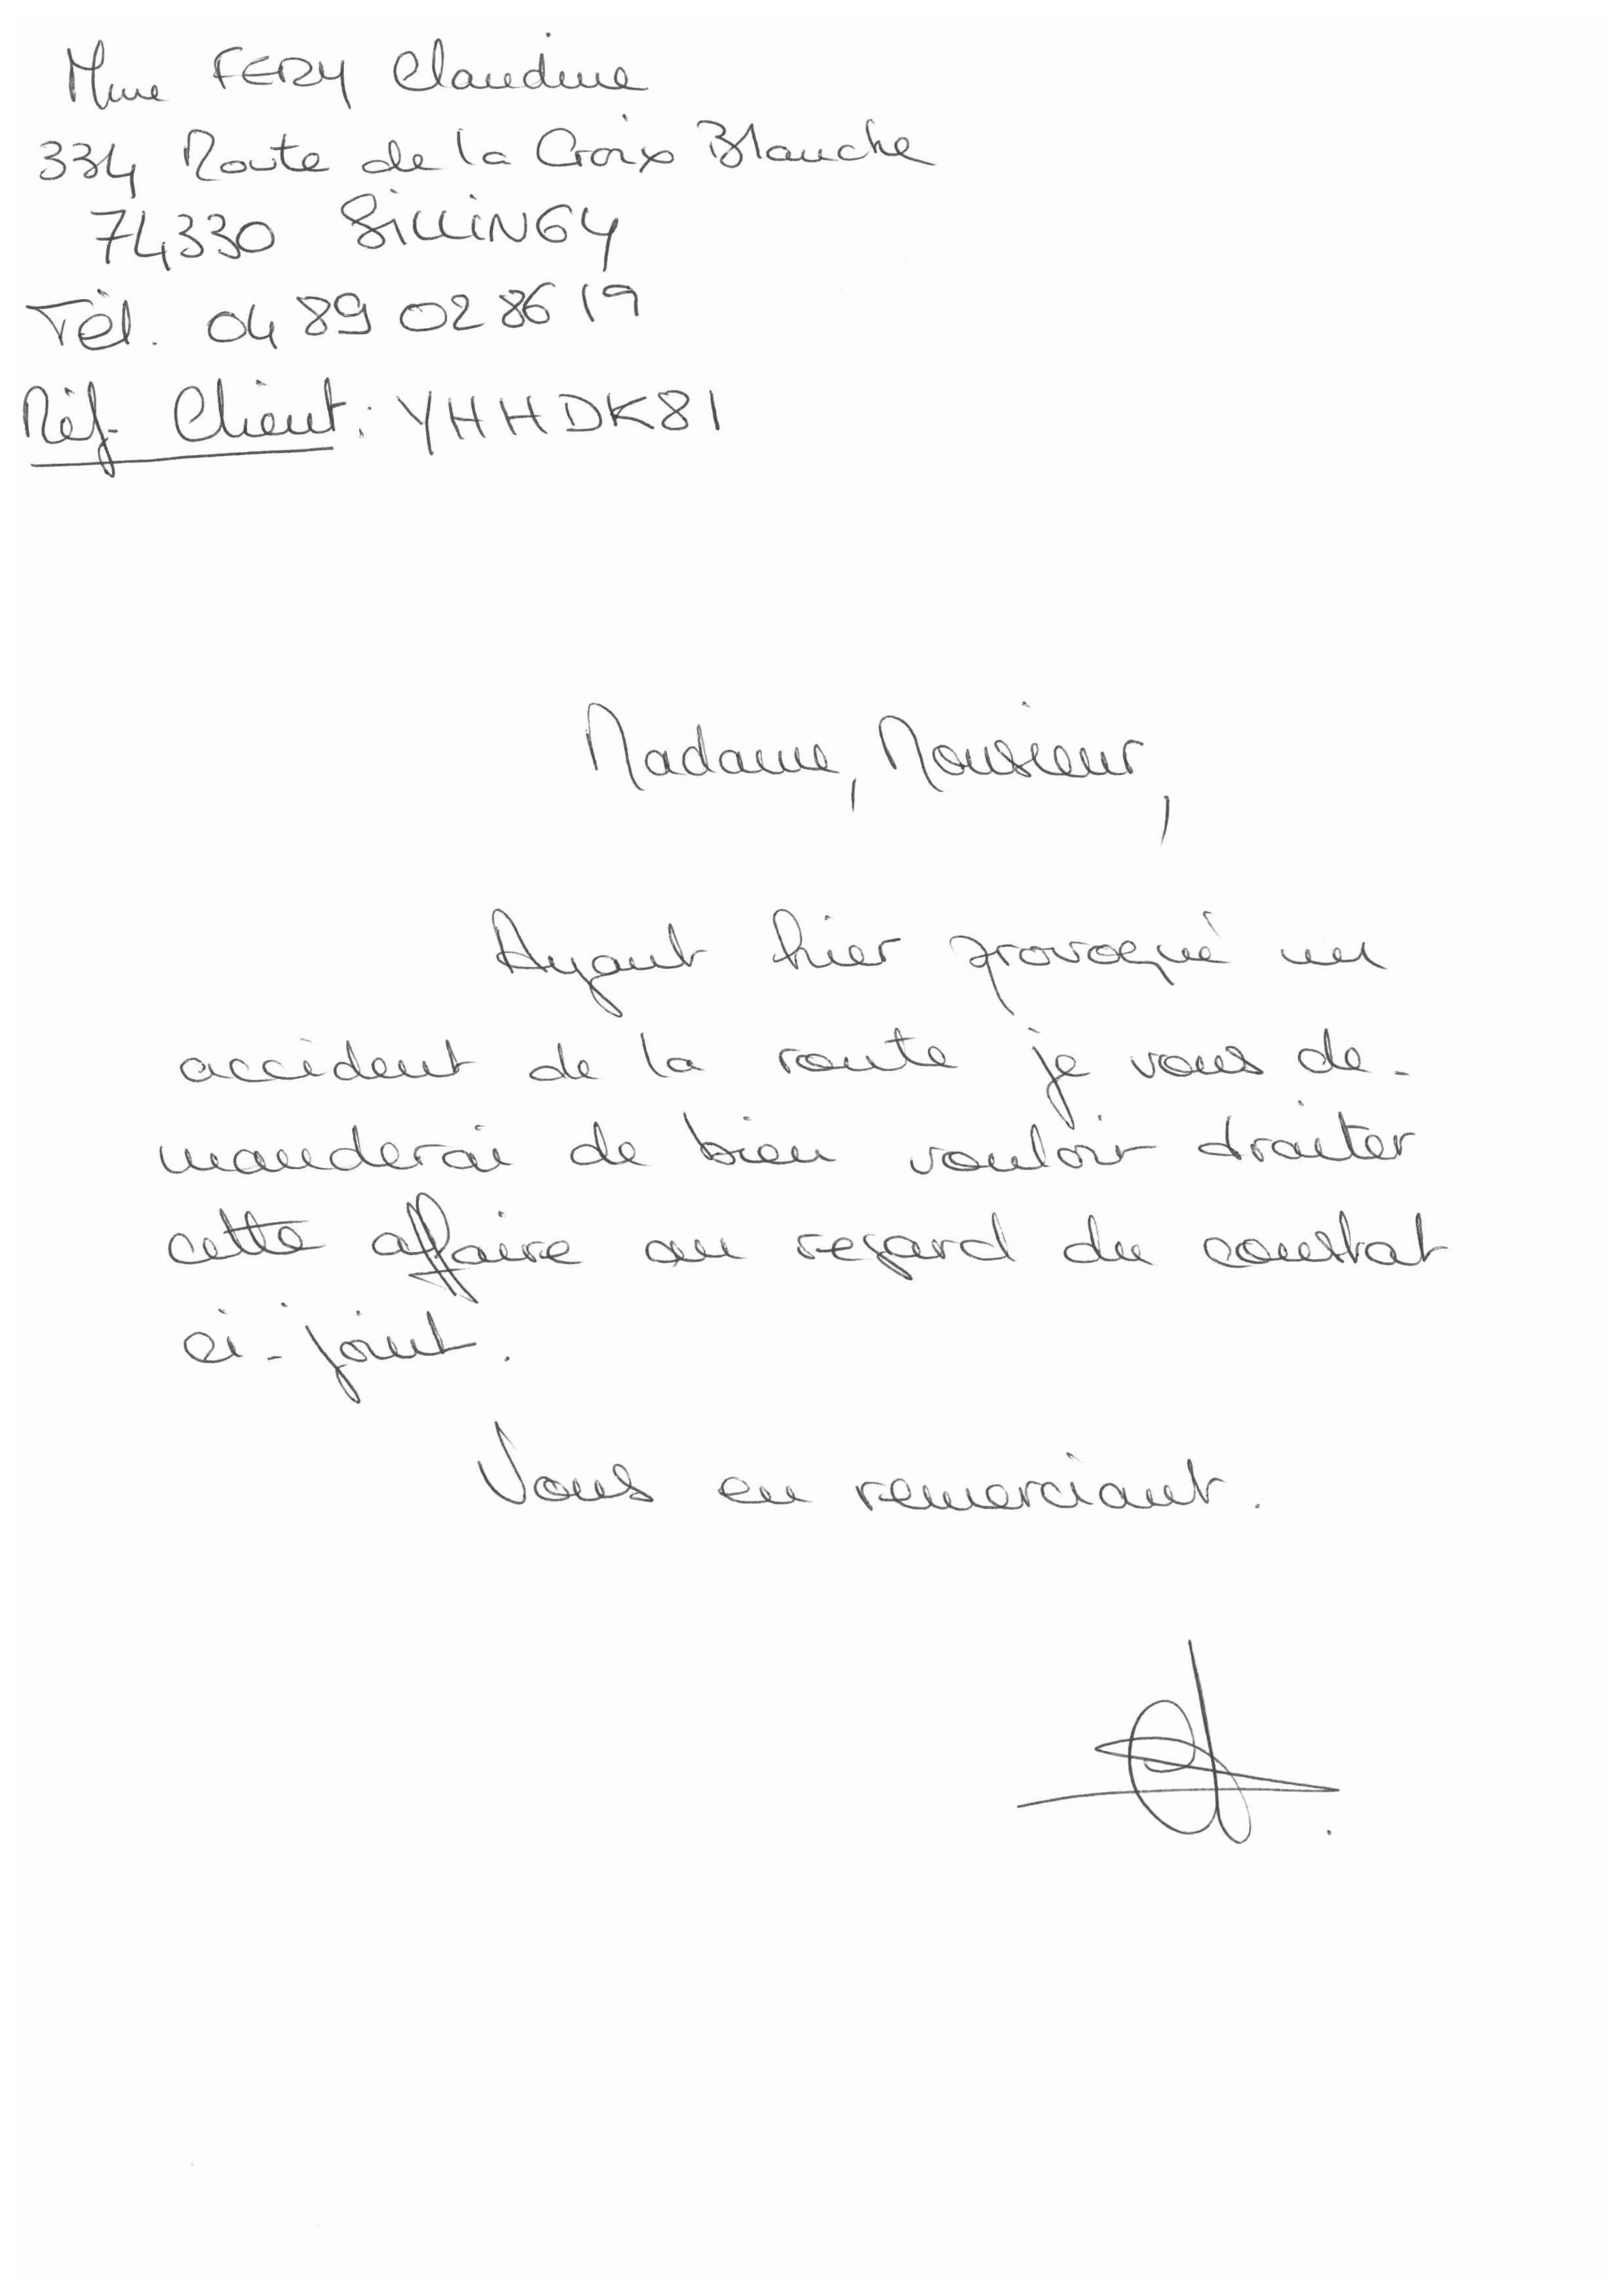 Mme FERY Claudine
334 Route de la Croix Blanche
74330 SILLINGY
Tél. 04 89 02 86 19
Réf. Client : YHHDK81
Madame, Monsieur,
Ayant hier provoqué un
accident de la route je vous de-
manderai de bien vouloir traiter
cette affaire au regard du constat
ci-joint.
Vous en remerciant.